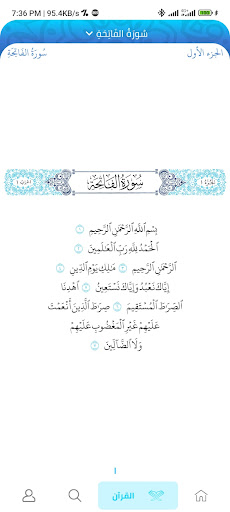 7:36 PM | 95.4KB/s
سُورَةُ الفَاتِحَةِ
الجزء الأول سُورَةُ الفَاتِحَةِ
سُورَةُ الفَاتِحَةِ
بِسْمِ ٱللَّهِ ٱلرَّحْمَٰنِ ٱلرَّحِيمِ ١
ٱلْحَمْدُ لِلَّهِ رَبِّ ٱلْعَٰلَمِينَ ٢
ٱلرَّحْمَٰنِ ٱلرَّحِيمِ ٣ مَٰلِكِ يَوْمِ ٱلدِّينِ ٤
إِيَّاكَ نَعْبُدُ وَإِيَّاكَ نَسْتَعِينُ ٥ ٱهْدِنَا
ٱلصِّرَٰطَ ٱلْمُسْتَقِيمَ ٦ صِرَٰطَ ٱلَّذِينَ أَنْعَمْتَ
عَلَيْهِمْ غَيْرِ ٱلْمَغْضُوبِ عَلَيْهِمْ
وَلَا ٱلضَّآلِّينَ ٧
١
القرآن